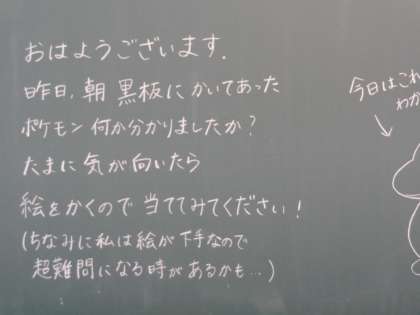 おはようございます.
昨日,朝 黒板にかいてあった
ポケモン 何か分かりましたか?
たまに 気が向いたら
絵をかくので 当ててみてください!
(ちなみに私は絵が下手なので
超難問になる時があるかも…)
今日はこれ
わか